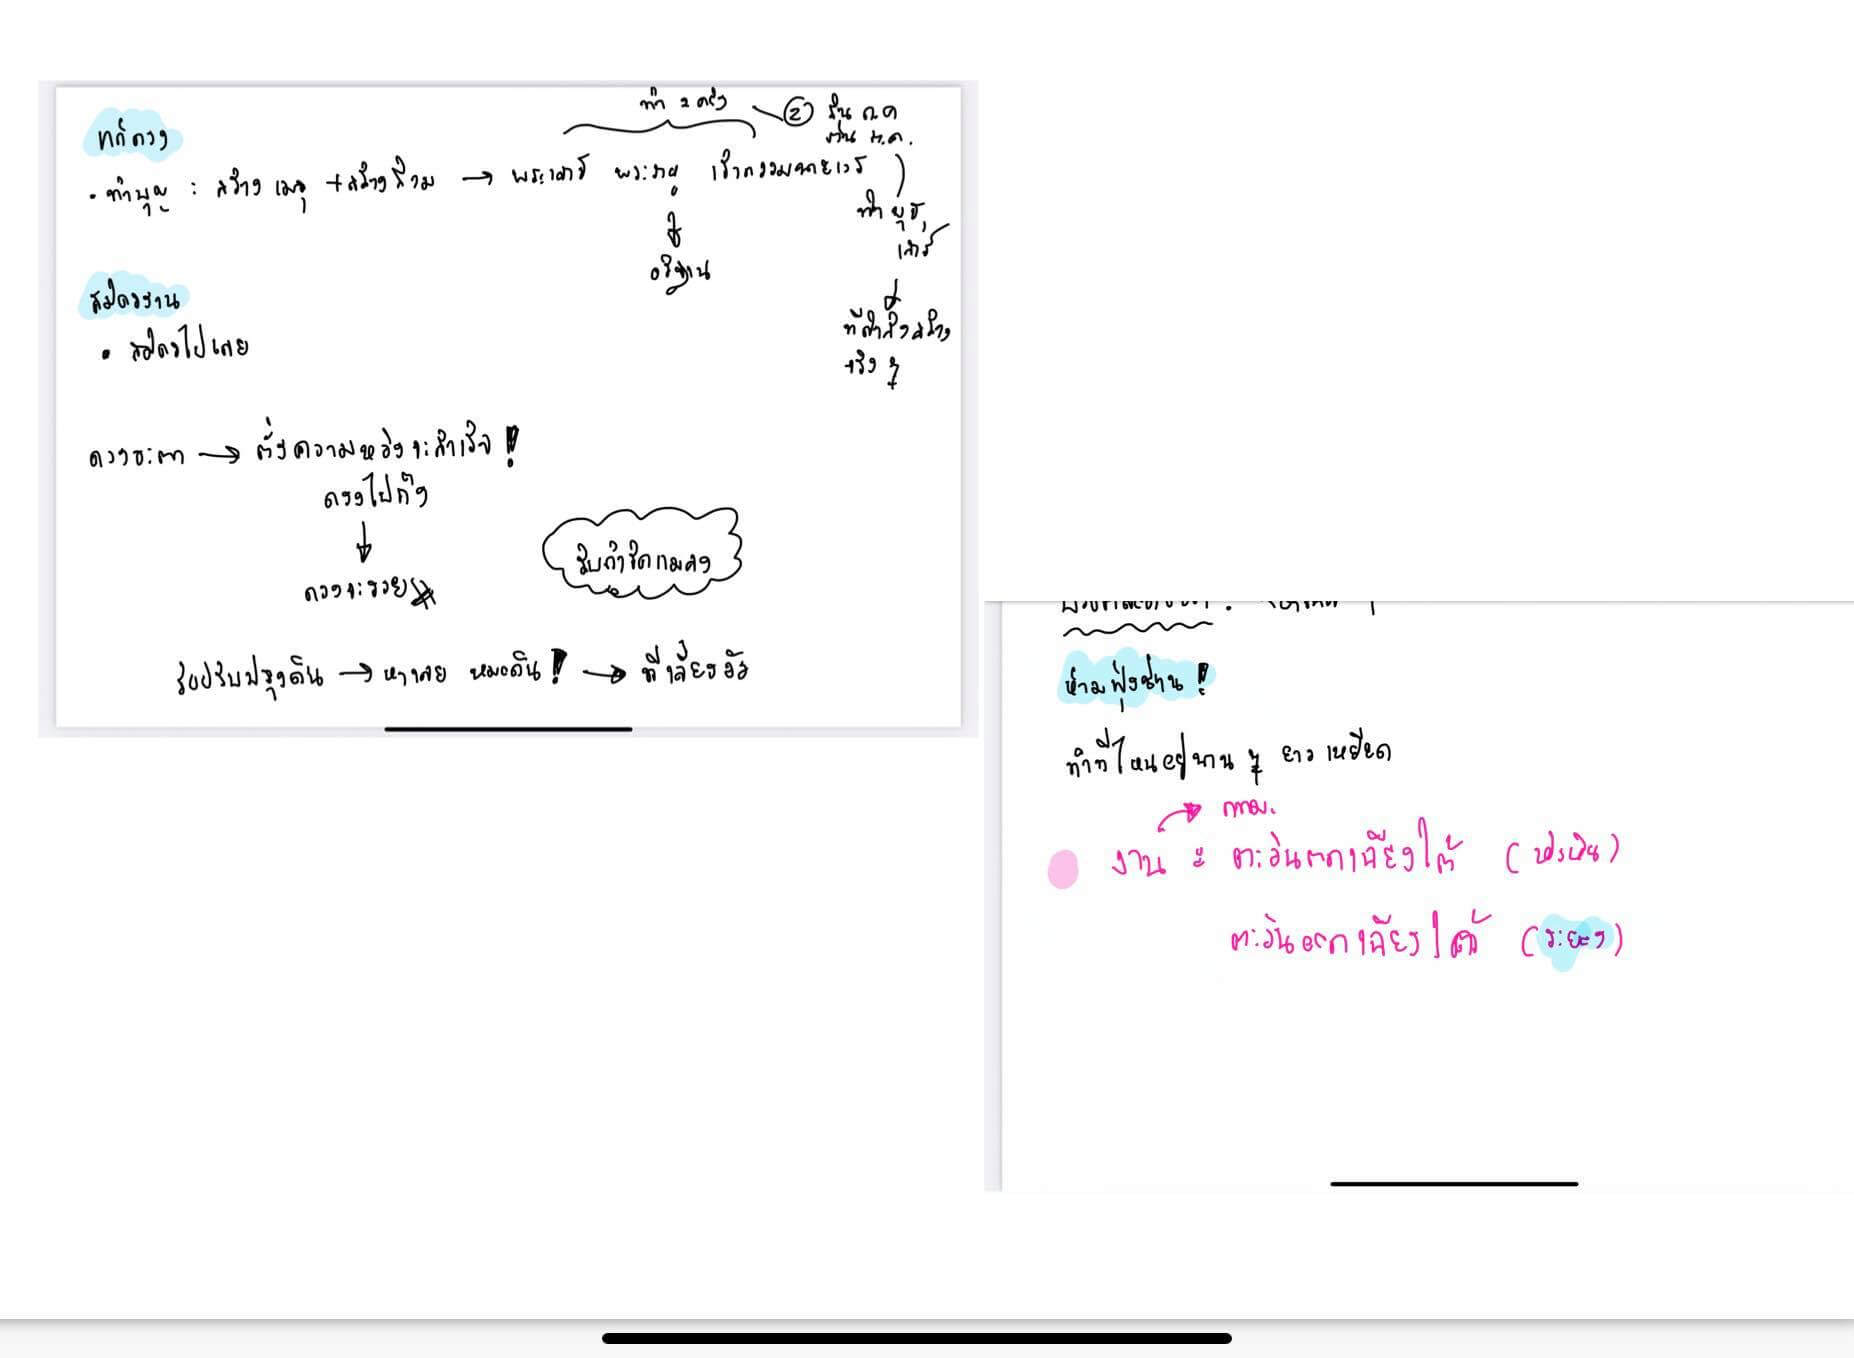 ทำ 2 ครั้ง
②
แก้ดวง
• ทำบุญ : สร้าง เมรุ + สร้าง → พระเสาร์ พระราหู เจ้ากรรมนายเวร
ทำ พุธ,
เสาร์
อธิฐาน
สมัครงาน
ที่กำลังสร้าง
จริง ๆ
• สมัครไปเลย
ดวงชะตา → ตั้งความหวังจะสำเร็จ!
ตรงไปตรง
↓
ดวงจะรวย
รับกำจัดแมลง
รับปรับปรุงดิน → หาเลย หมอดิน! → ที่เลี้ยงวัว
ห้ามฟุ้งซ่าน!
ทำที่ไหนอยู่นาน ๆ ยาวเหยียด
→ กทม.
งาน : ตะวันตกเฉียงใต้
ตะวันออกเฉียงใต้ (ระยอง)